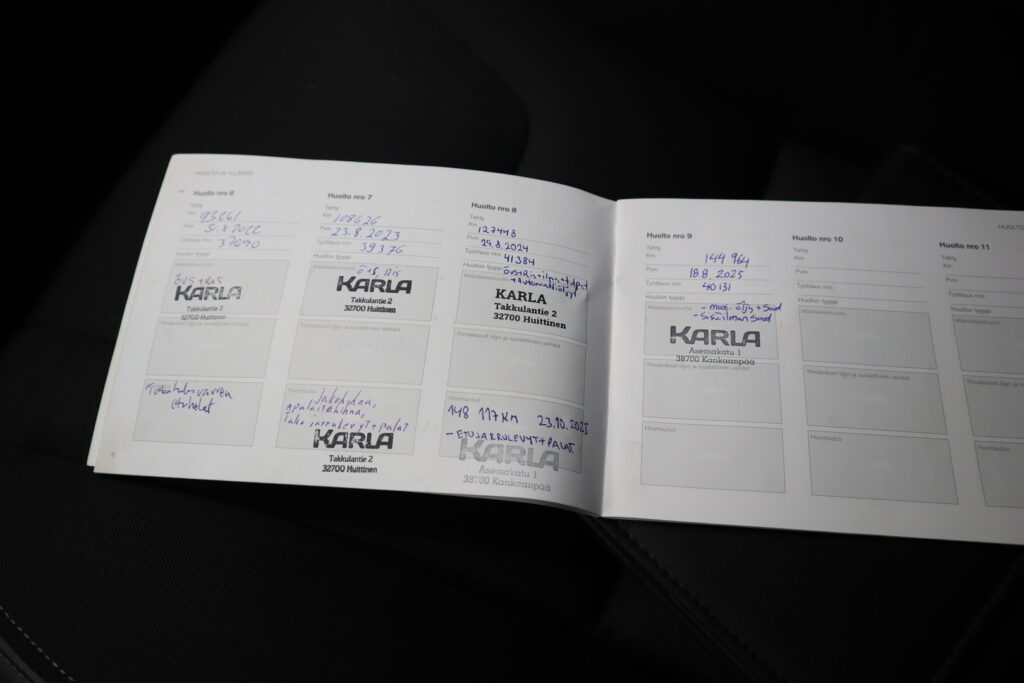 HUOLTO JA YLLÄPITO
Huolto nro 6
Tehty
Km 93261
Pvm 31.8.2022
Työtilaus nro: 37090
Huollon tyyppi
Määräaikaishuolto
ÖVS+RIS
KARLA
Takkulantie 2
32700 Huittinen
Ylimääräiset öljyn ja suodattimen vaihdot
etuhelat
Huolto nro 7
Tehty
Km 108626
Pvm 23.8.2023
Työtilaus nro: 39376
Huollon tyyppi
Määräaikaishuolto
Ö+S, RIS
KARLA
Takkulantie 2
32700 Huittinen
Ylimääräiset öljyn ja suodattimen vaihdot
Huomautus
Jakohihna,
Apulaitehihna,
Taka jarrulevyt+palat
KARLA
Takkulantie 2
32700 Huittinen
Huolto nro 8
Tehty
Km 127448
Pvm 29.8.2024
Työtilaus nro: 41384
Huollon tyyppi
Määräaikaishuolto
KARLA
Takkulantie 2
32700 Huittinen
Ylimääräiset öljyn ja suodattimen vaihdot
Huomautus
148 117 KM 23.10.2025
- ETUJARRULEVYT+PALAT
KARLA
Asemakatu 1
38700 Kankaanpää
8
HUOLTO
Huolto nro 9
Tehty
Km 144 964
Pvm 18.8. 2025
Työtilaus nro: 40131
Huollon tyyppi
Määräaikaishuolto
- moot. öljy + suod
- Sisäilman suod
KARLA
Asemakatu 1
38700 Kankaanpää
Ylimääräiset öljyn ja suodattimen vaihdot
Huomautus
Huolto nro 10
Tehty
Km
Pvm
Työtilaus nro:
Huollon tyyppi
Määräaikaishuolto
Ylimääräiset öljyn ja suodattimen vaihdot
Huomautus
Huolto nro 11
Tehty
Km
Pvm
Työtilaus nro:
Huollon tyyppi
Määräaikaishuolto
Ylimääräiset öljyn
Huomautus